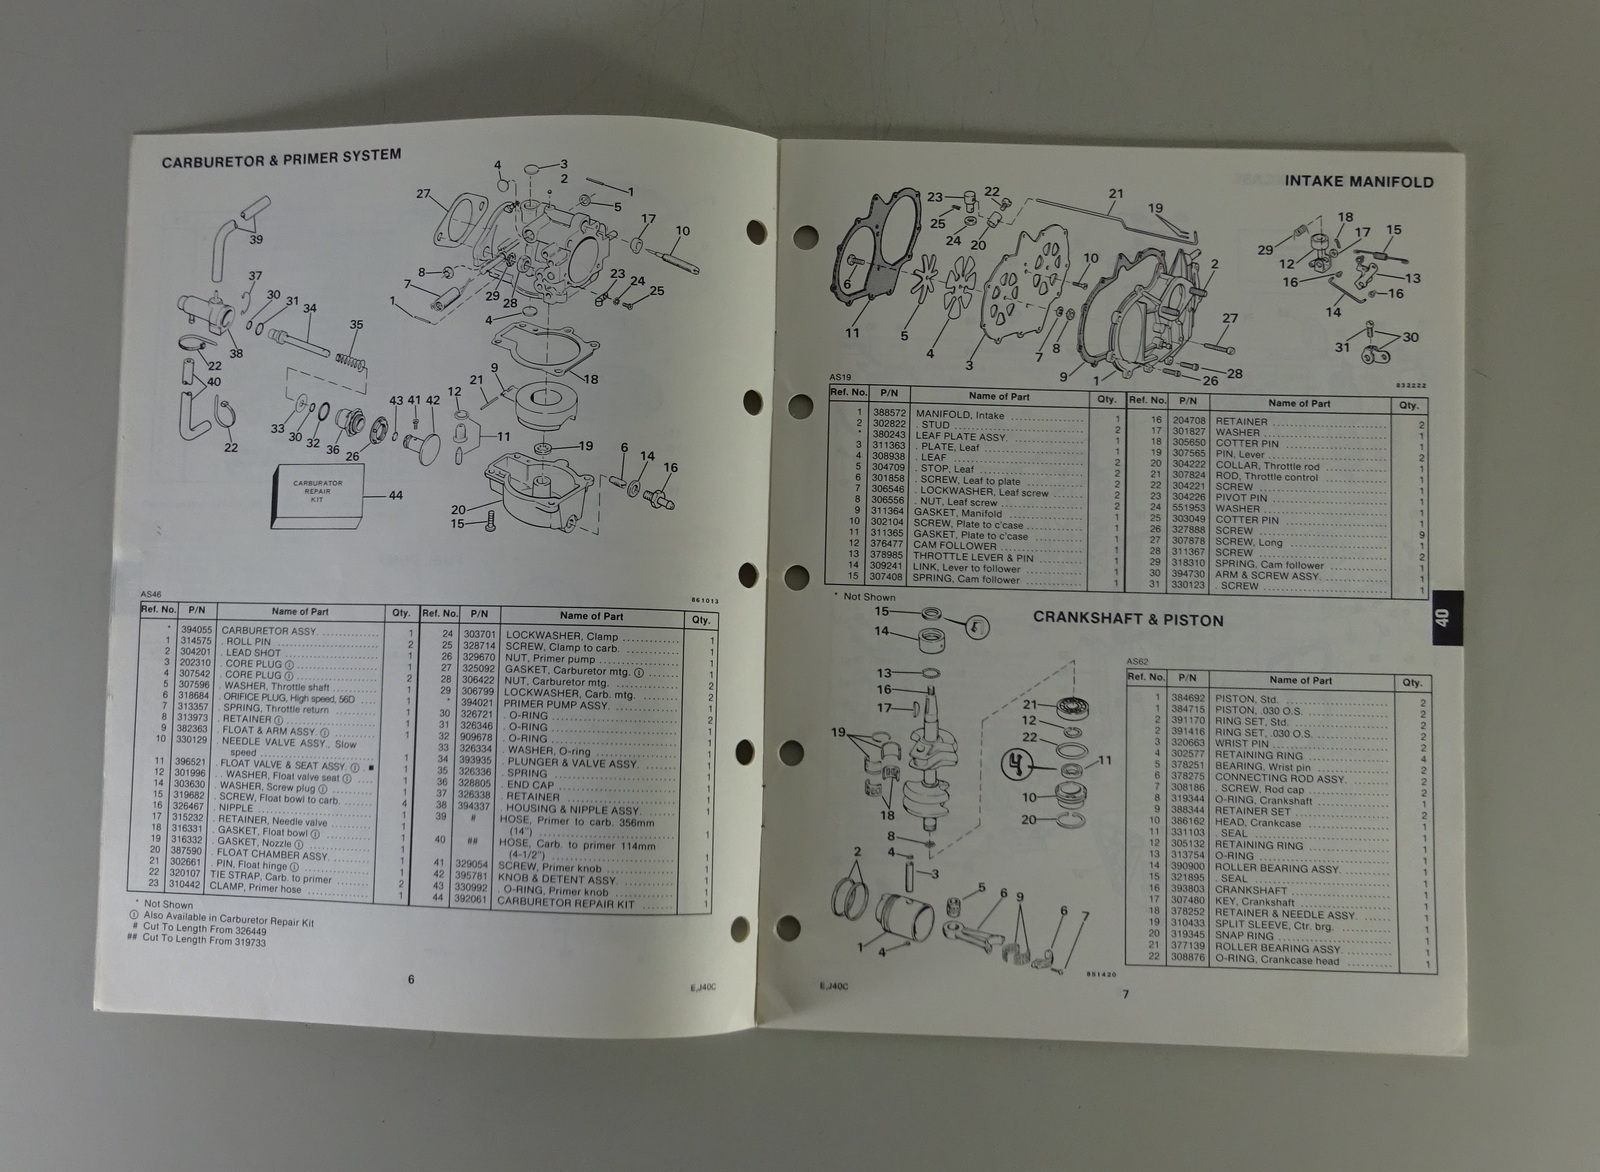 CARBURETOR & PRIMER SYSTEM
CARBURATOR
REPAIR
KIT
AS46
861013
Ref. No. P/N Name of Part Qty.
* 394055 CARBURETOR ASSY. 1
1 314575 . ROLL PIN 2
2 304201 . LEAD SHOT 1
3 202310 . CORE PLUG ① 1
4 307542 . CORE PLUG ① 2
5 307596 . WASHER, Throttle shaft 1
6 318684 . ORIFICE PLUG, High speed, 56D 1
7 313357 . SPRING, Throttle return 1
8 313973 . RETAINER ① 1
9 382363 . FLOAT & ARM ASSY. ① 1
10 330129 . NEEDLE VALVE ASSY., Slow
speed 1
11 396521 . FLOAT VALVE & SEAT ASSY. ① . ■ 1
12 301996 . . WASHER, Float valve seat ① 1
14 303630 . WASHER, Screw plug ① 1
15 319682 . SCREW, Float bowl to carb. 4
16 326467 . NIPPLE 1
17 315232 . RETAINER, Needle valve 1
18 316331 . GASKET, Float bowl ① 1
19 316332 . GASKET, Nozzle ① 1
20 387590 . FLOAT CHAMBER ASSY. 1
21 302661 . PIN, Float hinge ① 1
22 320107 TIE STRAP, Carb. to primer 2
23 310442 CLAMP, Primer hose 1
Ref. No. P/N Name of Part Qty.
24 303701 LOCKWASHER, Clamp 1
25 328714 SCREW, Clamp to carb. 1
26 329670 NUT, Primer pump 1
27 325092 GASKET, Carburetor mtg. ① 1
28 306422 NUT, Carburetor mtg. 2
29 306799 LOCKWASHER, Carb. mtg. 2
* 394021 PRIMER PUMP ASSY. 1
30 326721 . O-RING 2
31 326346 . O-RING 1
32 909678 . O-RING 1
33 326334 . WASHER, O-ring 1
34 393935 . PLUNGER & VALVE ASSY. 1
35 326336 . SPRING 1
36 328805 . END CAP 1
37 326338 . RETAINER 1
38 394337 . HOUSING & NIPPLE ASSY. 1
39 # HOSE, Primer to carb. 356mm
(14") 1
40 ## HOSE, Carb. to primer 114mm
(4-1/2") 1
41 329054 SCREW, Primer knob 1
42 395781 KNOB & DETENT ASSY. 1
43 330992 . O-RING, Primer knob 1
44 392061 CARBURETOR REPAIR KIT 1
* Not Shown
① Also Available in Carburetor Repair Kit
# Cut To Length From 326449
## Cut To Length From 319733
6
E,J40C
INTAKE MANIFOLD
AS19
832222
Ref. No. P/N Name of Part Qty.
1 388572 MANIFOLD, Intake 1
2 302822 . STUD 2
* 380243 LEAF PLATE ASSY. 1
3 311363 . PLATE, Leaf 1
4 308938 . LEAF 2
5 304709 . STOP, Leaf 2
6 301858 . SCREW, Leaf to plate 2
7 306546 . LOCKWASHER, Leaf screw 2
8 306556 . NUT, Leaf screw 2
9 311364 GASKET, Manifold 1
10 302104 SCREW, Plate to c'case 1
11 311365 GASKET, Plate to c'case 1
12 376477 CAM FOLLOWER 1
13 378985 THROTTLE LEVER & PIN 1
14 309241 LINK, Lever to follower 1
15 307408 SPRING, Cam follower 1
Ref. No. P/N Name of Part Qty.
16 204708 RETAINER 2
17 301827 WASHER 1
18 305650 COTTER PIN 1
19 307565 PIN, Lever 2
20 304222 COLLAR, Throttle rod 1
21 307824 ROD, Throttle control 1
22 304221 SCREW 1
23 304226 PIVOT PIN 1
24 551953 WASHER 1
25 303049 COTTER PIN 1
26 327888 SCREW 9
27 307878 SCREW, Long 1
28 311367 SCREW 2
29 318310 SPRING, Cam follower 1
30 394730 ARM & SCREW ASSY. 1
31 330123 . SCREW 1
* Not Shown
40
CRANKSHAFT & PISTON
5
4
AS62
Ref. No. P/N Name of Part Qty.
1 384692 PISTON, Std. 2
1 384715 PISTON, .030 O.S. 2
2 391170 RING SET, Std. 2
2 391416 RING SET, .030 O.S. 2
3 320663 WRIST PIN 2
4 302577 RETAINING RING 4
5 378251 BEARING, Wrist pin 2
6 378275 CONNECTING ROD ASSY. 2
7 308186 . SCREW, Rod cap 2
8 319344 O-RING, Crankshaft 1
9 388344 RETAINER SET 2
10 386162 HEAD, Crankcase 1
11 331103 . SEAL 1
12 305132 RETAINING RING 1
13 313754 O-RING 1
14 390900 ROLLER BEARING ASSY. 1
15 321895 . SEAL 1
16 393803 CRANKSHAFT 1
17 307480 KEY, Crankshaft 1
18 378252 RETAINER & NEEDLE ASSY. 1
19 310433 SPLIT SLEEVE, Ctr. brg. 1
20 319345 SNAP RING 1
21 377139 ROLLER BEARING ASSY. 1
22 308876 O-RING, Crankcase head 1
851420
E,J40C
7